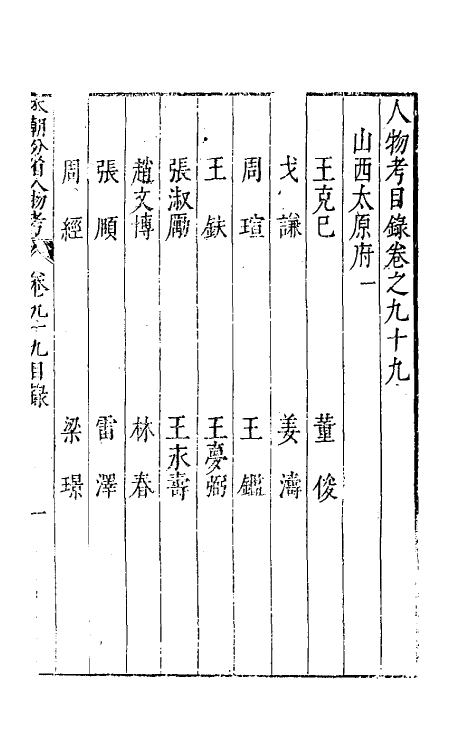 人物考目錄卷之九十九
山西太原府一
王克巳 董俊
戈謙 姜濤
周瑄 王鑑
王鈇 王夢弼
張淑勵 王永壽
趙文博 林春
張頤 雷澤
周經 梁璟
本朝分省人物考 卷九十九目錄 一